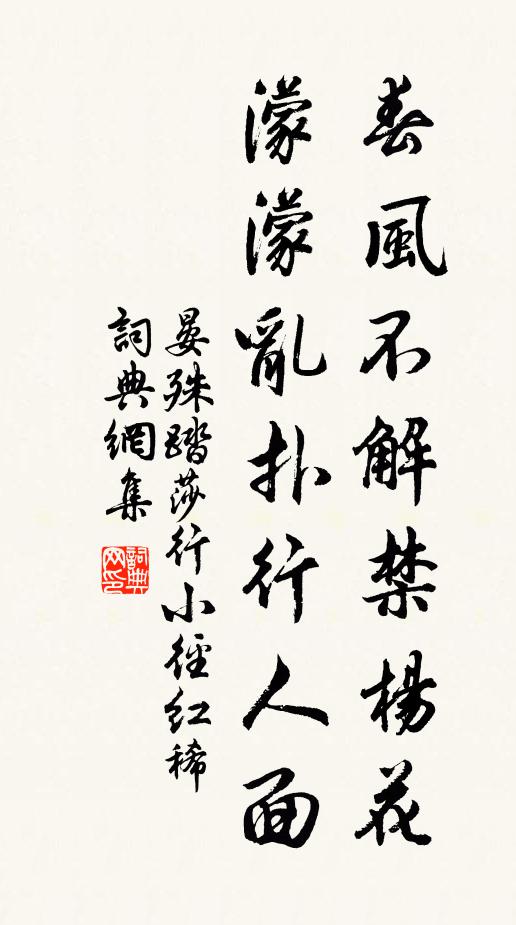 春風不解禁楊花
濛濛亂扑行人面
晏殊踏莎行小徑紅稀
詞典網集
詞典网印